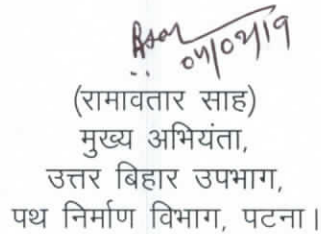 04/02/19
(रामावतार साह)
मुख्य अभियंता,
उत्तर बिहार उपभाग,
पथ निर्माण विभाग, पटना।